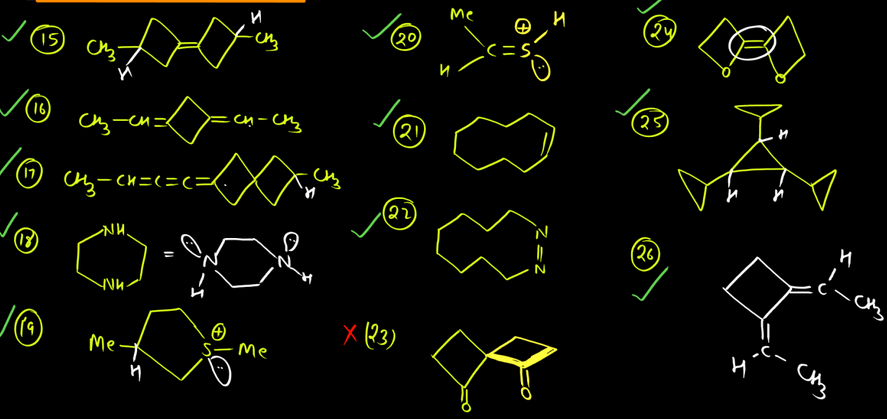 (15) CH3 H H CH3
(16) CH3-CH= =CH-CH3
(17) CH3-CH=C=C= CH3 H
(18) NH NH = N H N H
(19) Me H S ⊕ Me
(20) Me H C=S ⊕ H
(21)
(22) N=N
X (23) O O
(24) O O
(25) H H H
(26) =C H CH3 C H CH3